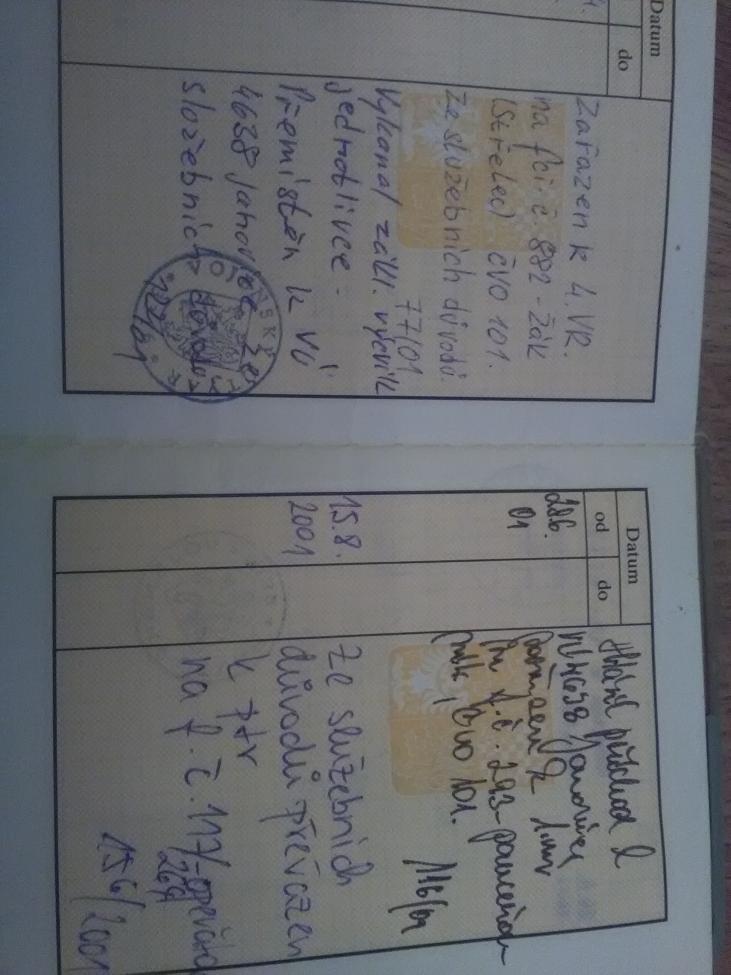 Datum
do
Zařazen k 4. VR.
na fci. č. 882 - žák
(střelec) čvo 101.
Ze služebních důvodů.
77/01
Vykonal zákl. výcvik
jednotlivce.
Přemístěn k VÚ
4638 Janovice ze
služebních důvodů
122/01
Datum
od
do
28.6.
01
příchod k
VÚ 4638 Janovice
zařazen k 1. mr
na f. č. 293-
čvo 101.
116/01
15.8.
2001
Ze služebních
důvodů převazen
k ptr
na f. č. 117/
264
156/2001